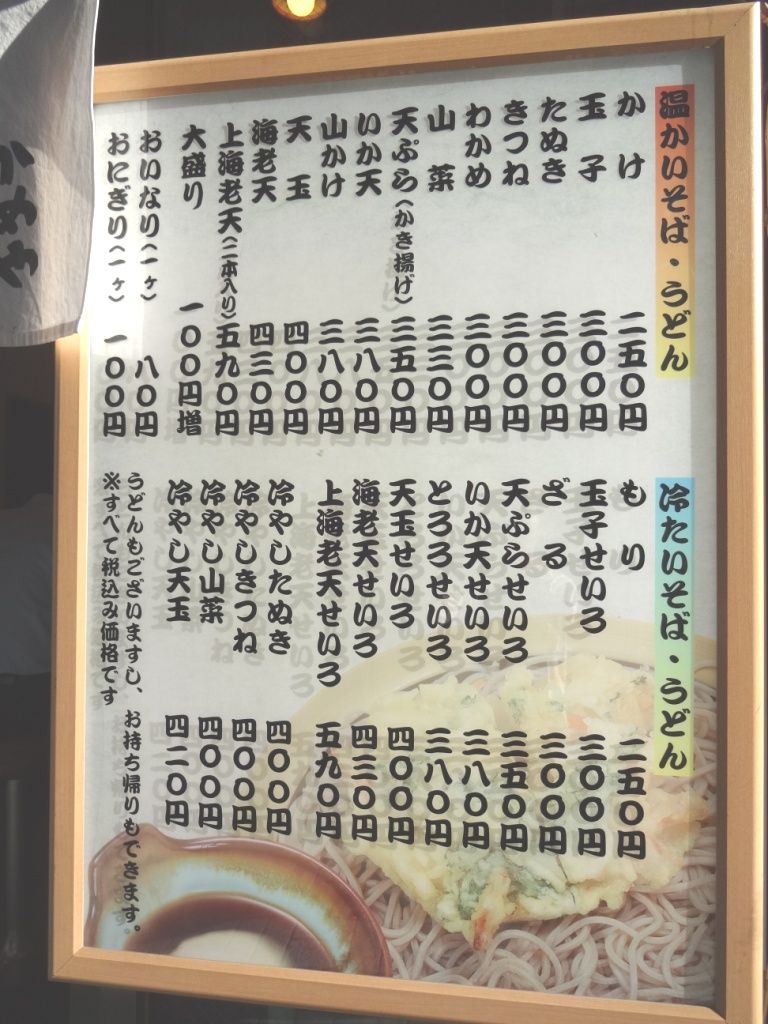 温かいそば・うどん
かけ 二五〇円
玉子 三〇〇円
たぬき 三〇〇円
きつね 三〇〇円
わかめ 三〇〇円
山菜 三三〇円
天ぷら(かき揚げ) 三五〇円
いか天 三八〇円
山かけ 三八〇円
天玉 四〇〇円
海老天 四三〇円
上海老天(二本入り) 五九〇円
大盛り 一〇〇円増
おいなり(一ヶ) 八〇円
おにぎり(一ヶ) 一〇〇円
冷たいそば・うどん
もり 二五〇円
玉子せいろ 三〇〇円
ざる 三〇〇円
天ぷらせいろ 三五〇円
いか天せいろ 三八〇円
とろろせいろ 三八〇円
天玉せいろ 四〇〇円
海老天せいろ 四三〇円
上海老天せいろ 五九〇円
冷やしたぬき 四〇〇円
冷やしきつね 四〇〇円
冷やし山菜 四〇〇円
冷やし天玉 四二〇円
うどんもございますし、お持ち帰りもできます。
※すべて税込み価格です
かめや